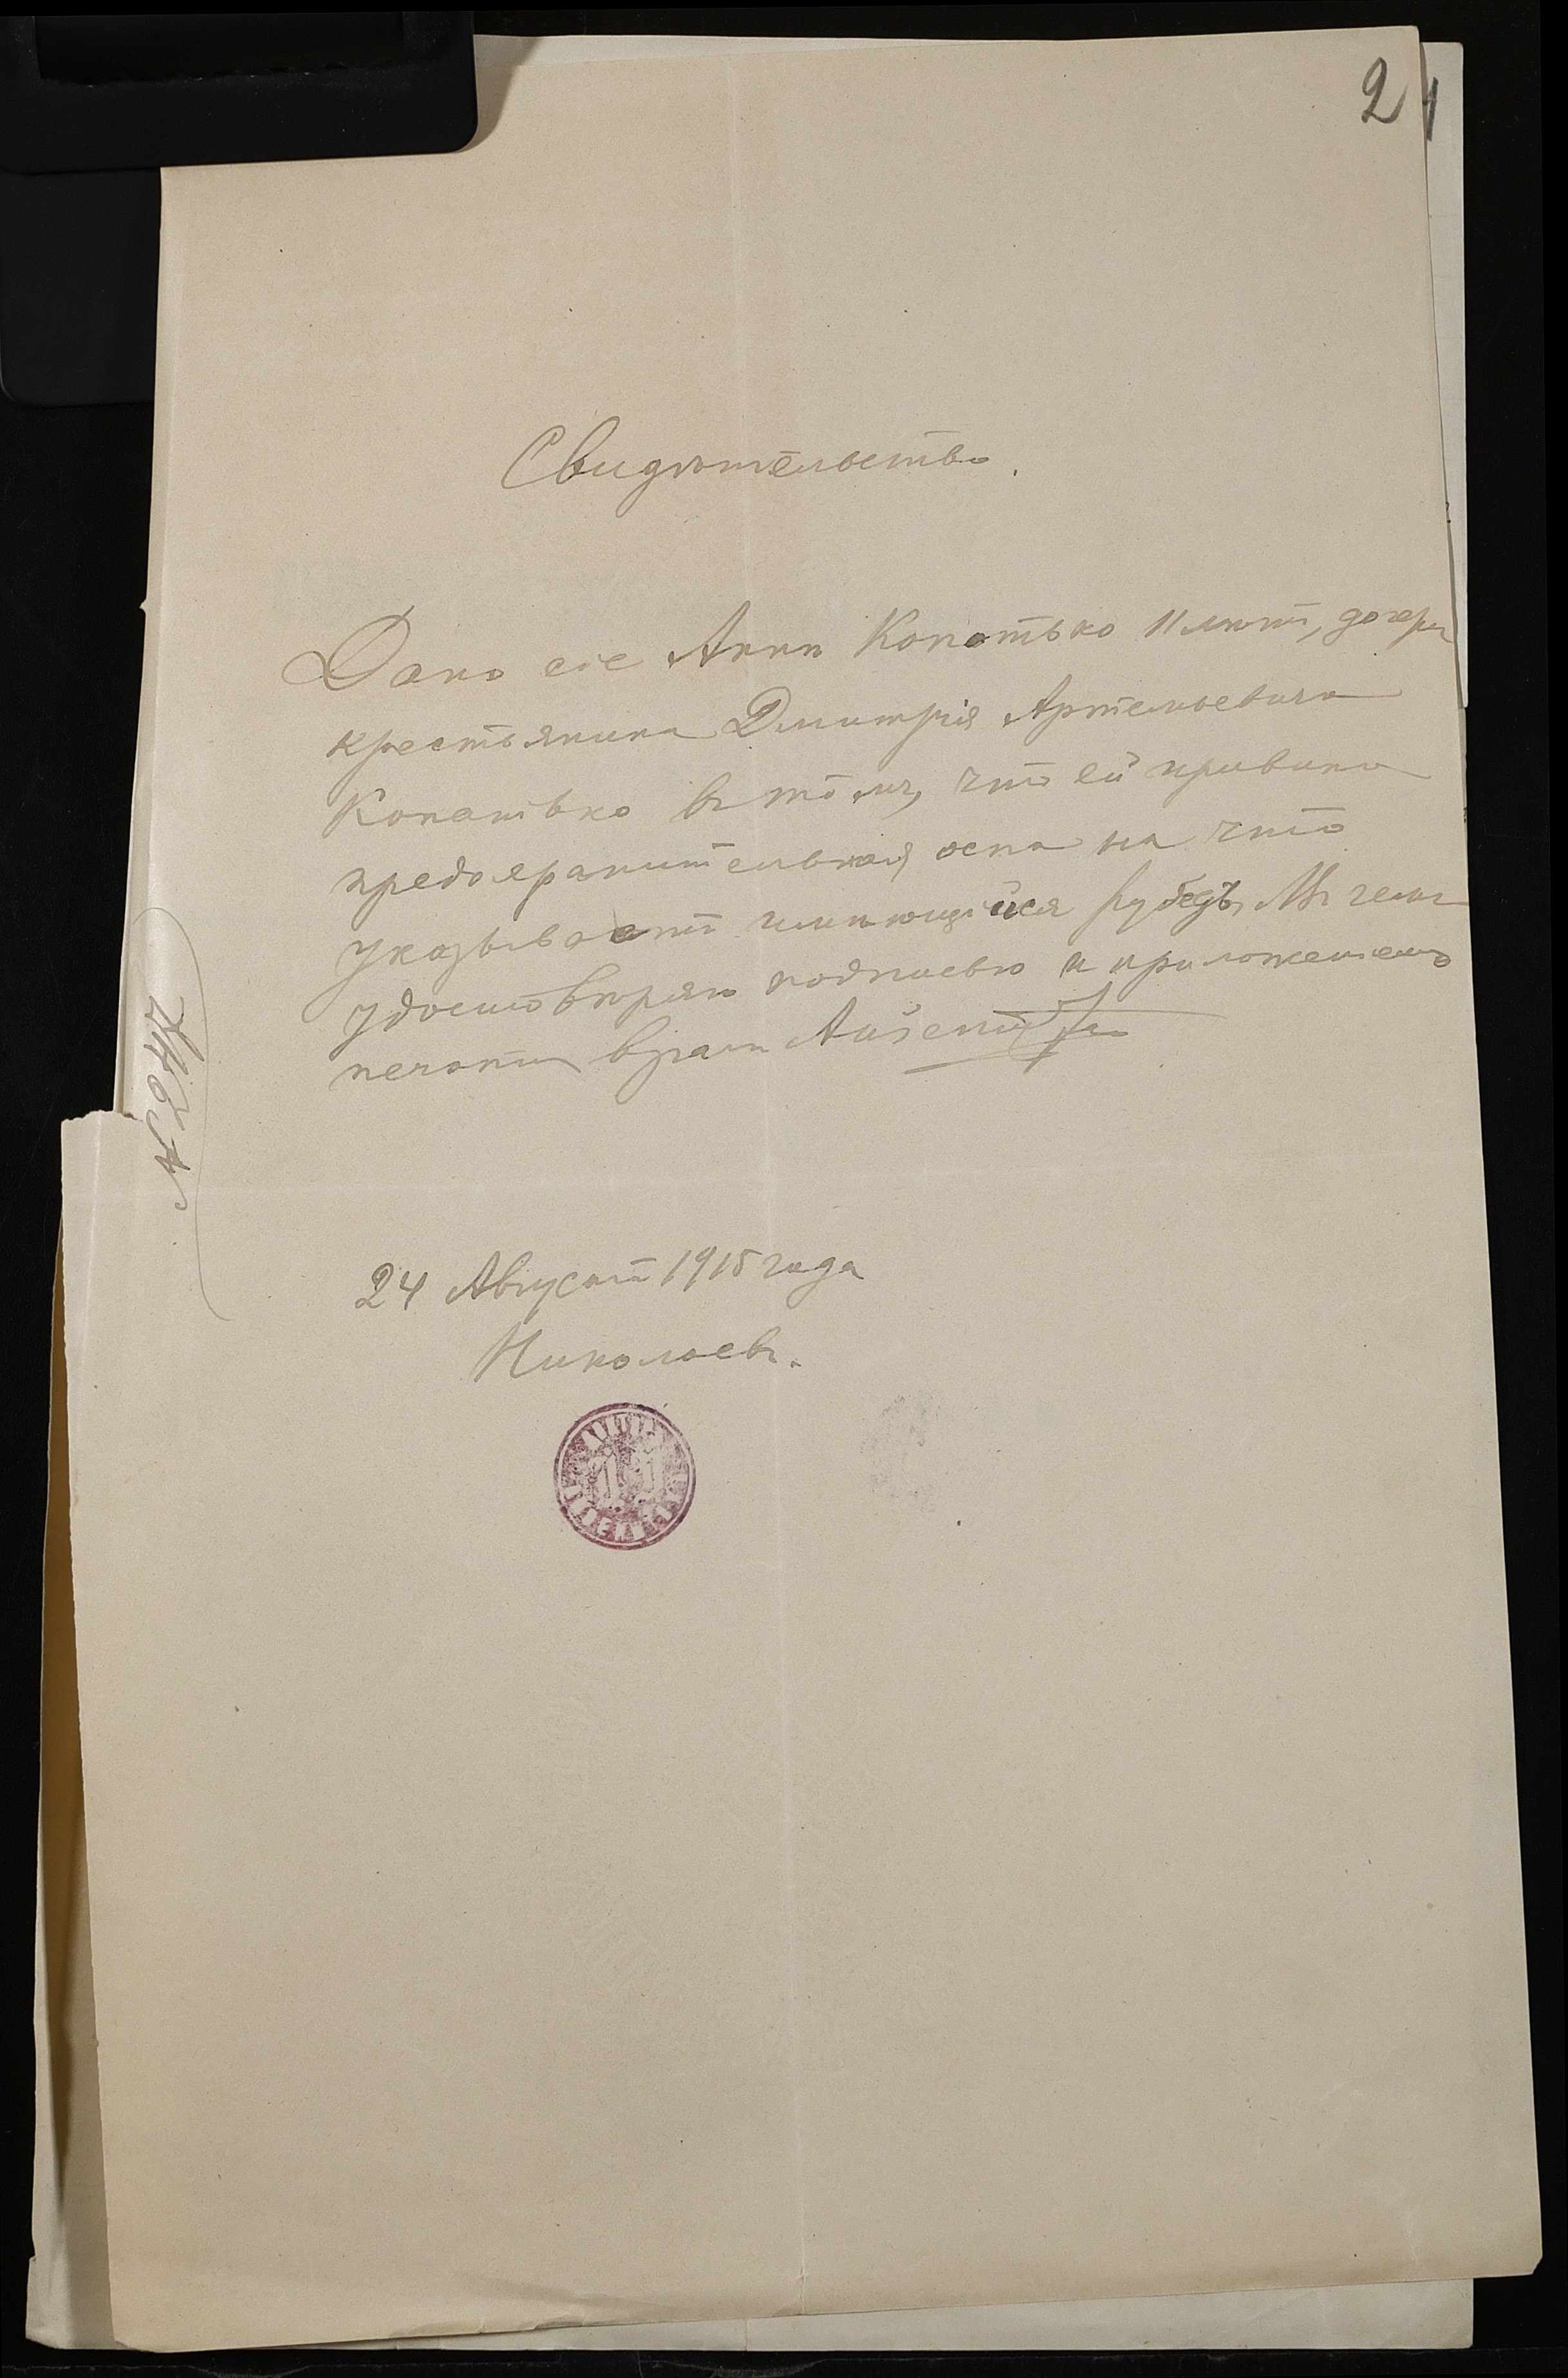 2
Свидѣтельство.
Дано сіе Аннѣ Копотько 11 лѣтъ, дочери
крестьянина Дмитрія Артемьевича
Копатько въ томъ, что ей привита
предохранительная оспа на что
указываетъ имѣющійся рубецъ, Въ чемъ
удостовѣряю подписью и приложеніемъ
печати врачъ
24 Августа 1915 года
Николаевъ.
№ 247